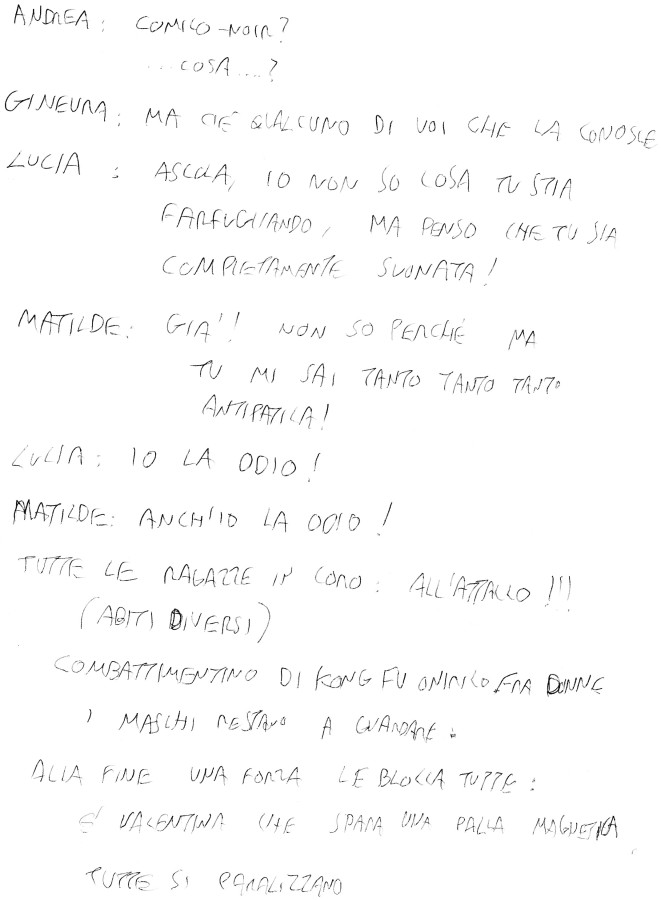 ANDREA: COMICO-NOIR?
...COSA....?
GINEVRA: MA C'È QUALCUNO DI VOI CHE LA CONOSCE
LUCIA: ASCOLA, IO NON SO COSA TU STIA
FARFUGLIANDO, MA PENSO CHE TU SIA
COMPLETAMENTE SUONATA!
MATILDE: GIA'! NON SO PERCHÉ MA
TU MI SAI TANTO TANTO TANTO
ANTIPATICA!
LUCIA: IO LA ODIO!
MATILDE: ANCH'IO LA ODIO!
TUTTE LE RAGAZZE IN CORO: ALL'ATTACCO!!!
(ABITI DIVERSI)
COMBATTIMENTINO DI KONG FU ONIRICO FRA DONNE
I MASCHI RESTANO A GUARDARE.
ALLA FINE UNA FORZA LE BLOCCA TUTTE:
E' VALENTINA CHE SPARA UNA PALLA MAGNETICA
TUTTE SI PARALIZZANO